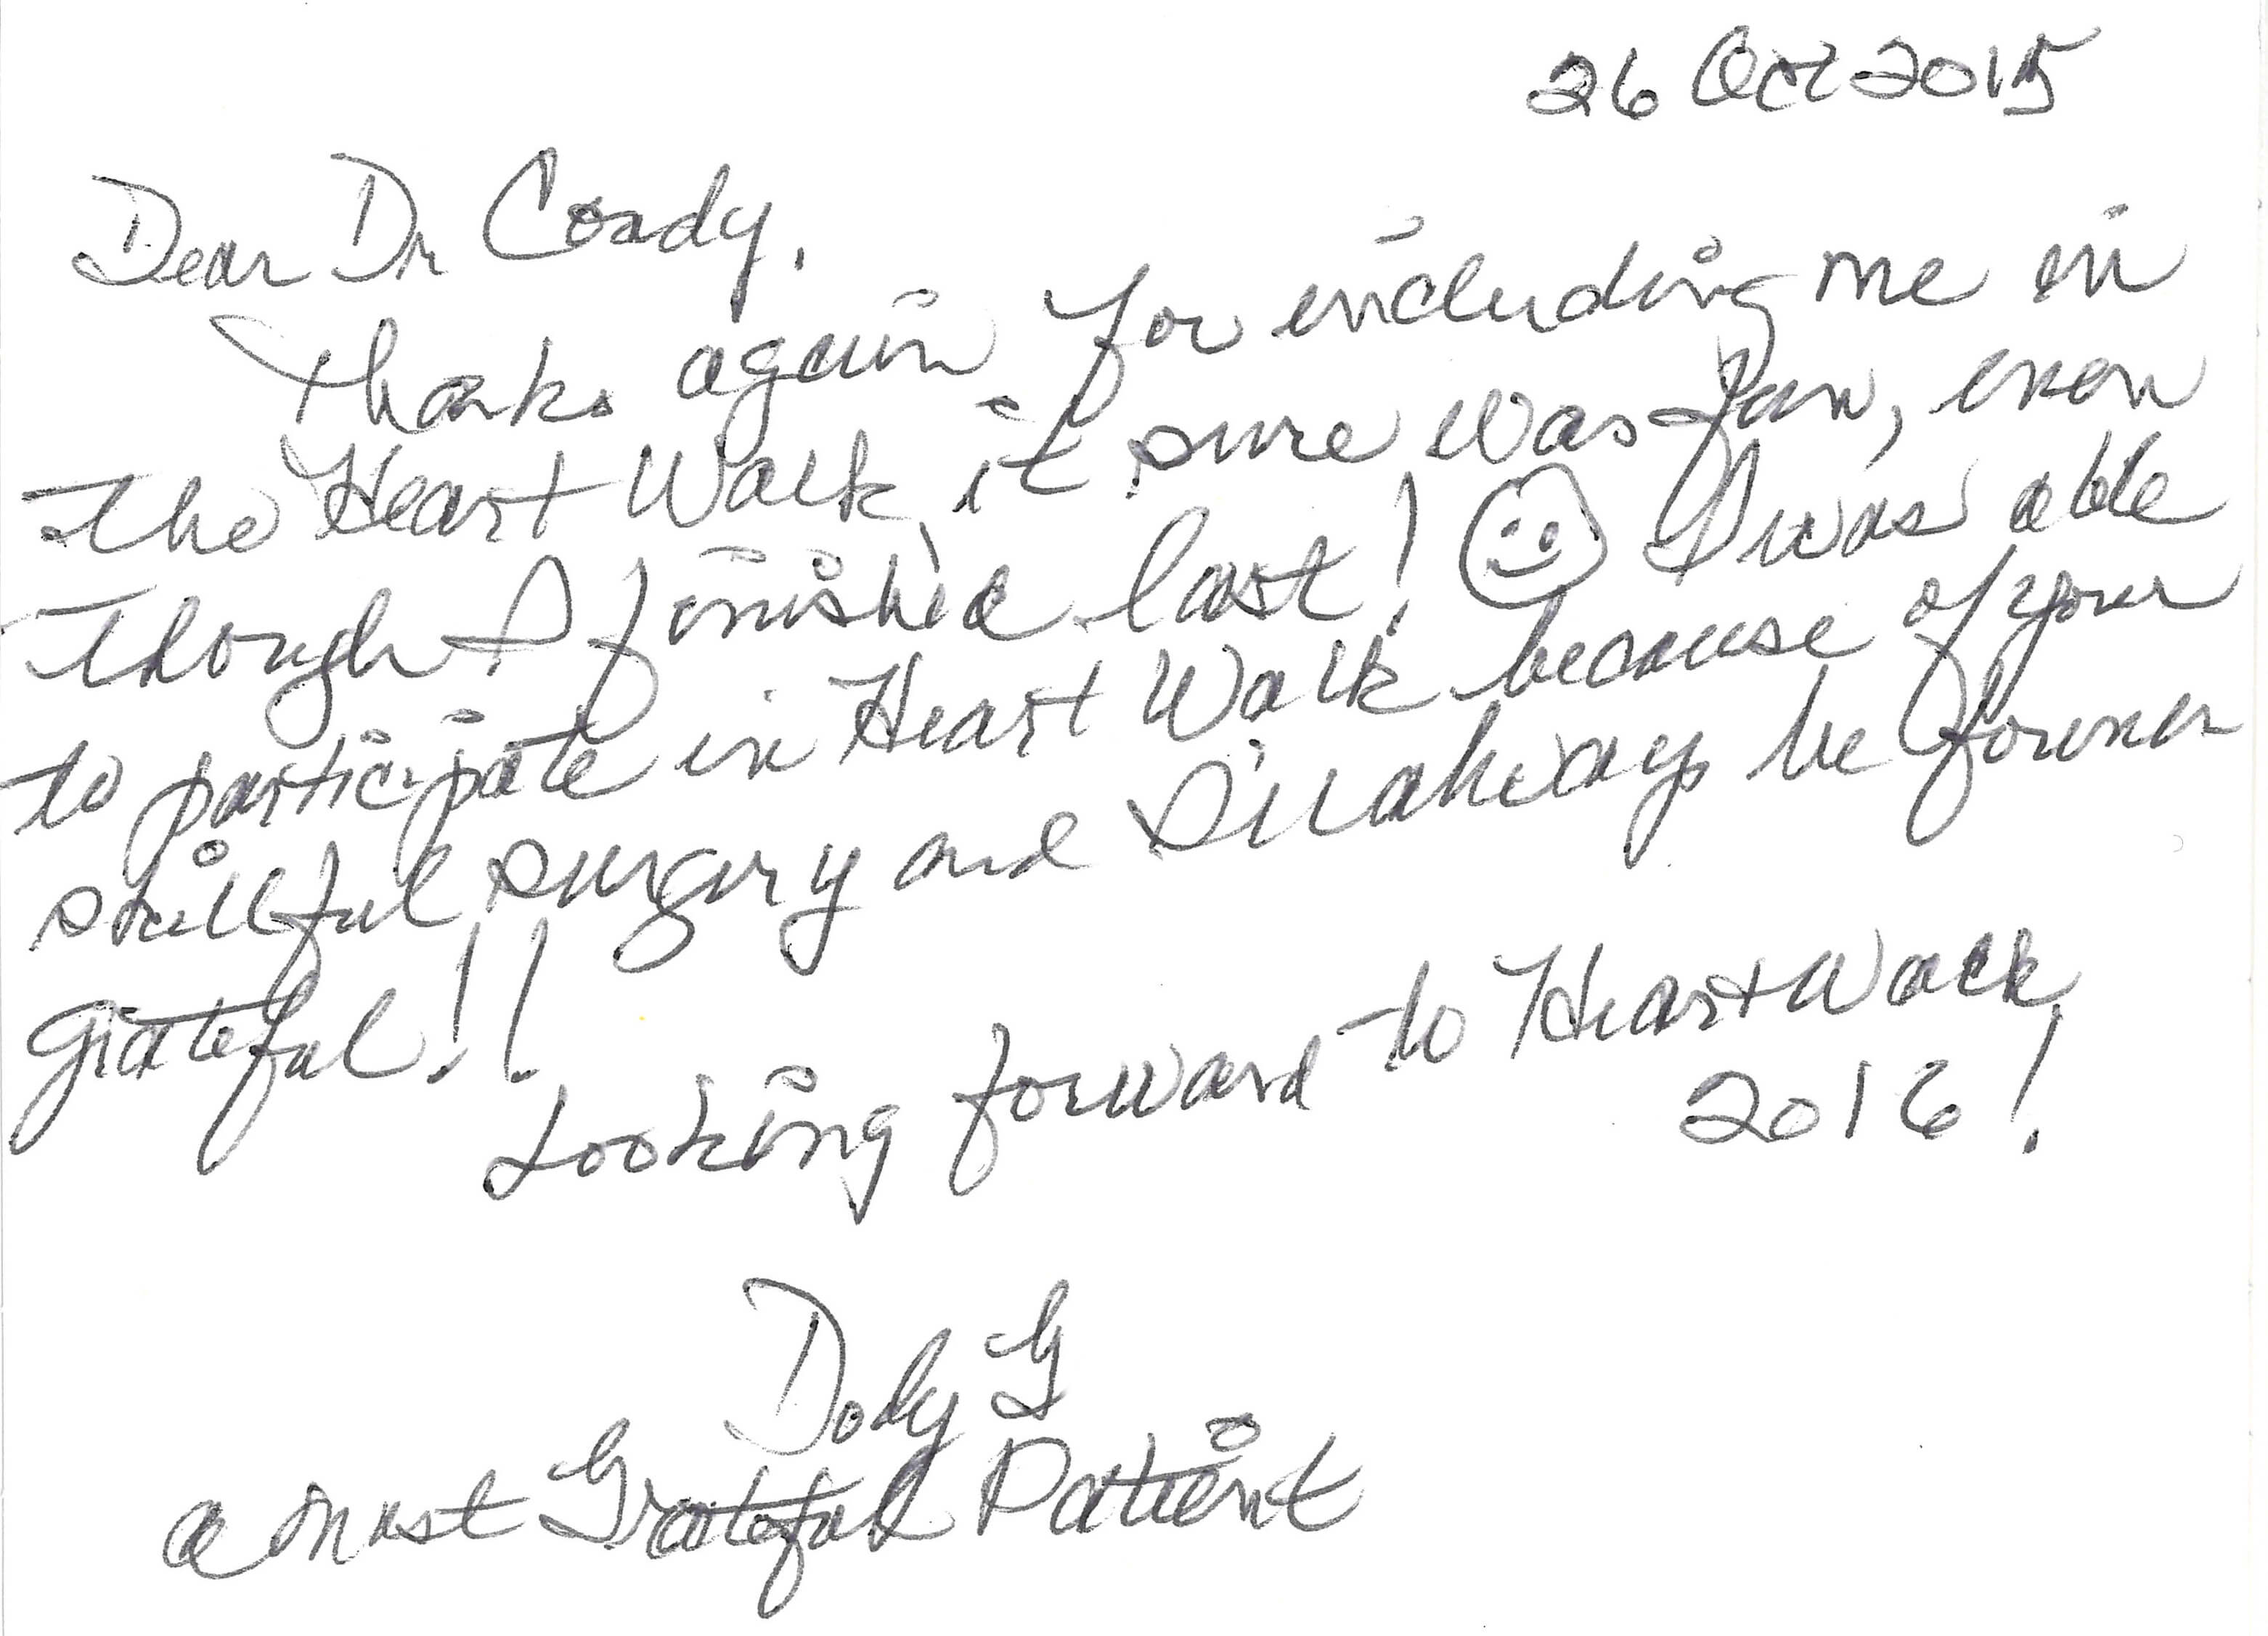 26 Oct 2015
Dear Dr Coady,
Thanks again for including me in
the Heart Walk, it sure was fun, even
though I finished last! I was able
to participate in Heart Walk because of your
skillful surgery and I'll always be forever
grateful!!
Looking forward to Heart Walk
2016!
Dody G
a most Grateful Patient